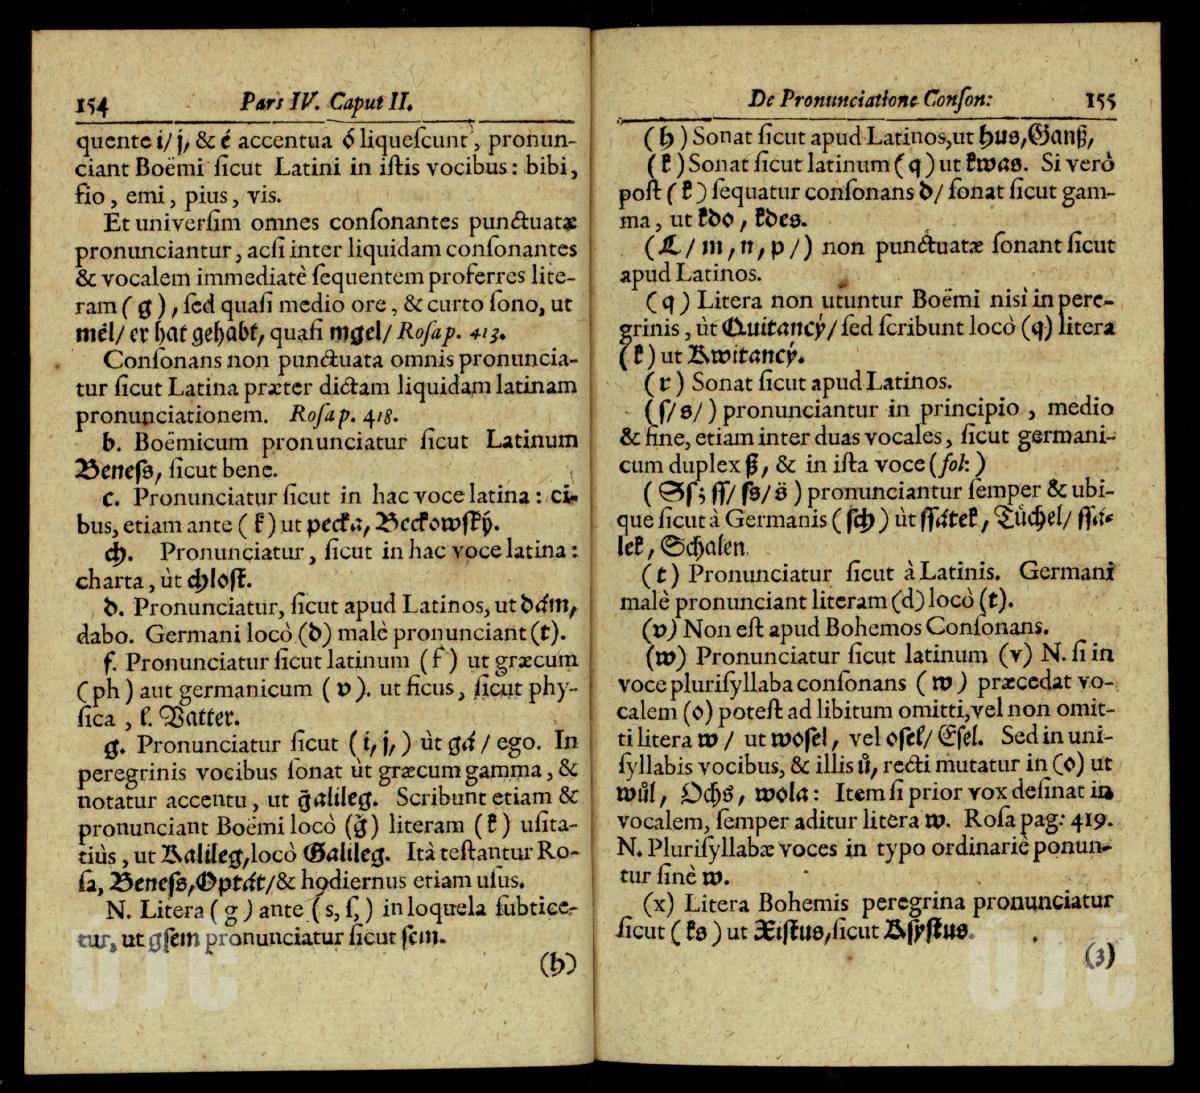 154 Pars IV. Caput II.
quente i/ j, & é accentua ó liqueſcunt, pronun-
ciant Boëmi ſicut Latini in iſtis vocibus: bibi,
fio, emi, pius, vis.
Et univerſim omnes conſonantes punctuatæ
pronunciantur, acſi inter liquidam conſonantes
& vocalem immediatè ſequentem proferres lite-
ram (g), ſed quaſi medio ore, & curto ſono, ut
mėl/ er hat gehabt, quaſi mgel/ Roſa p. 413.
Conſonans non punctuata omnis pronuncia-
tur ſicut Latina præter dictam liquidam latinam
pronunciationem. Roſa p. 418.
b. Boëmicum pronunciatur ſicut Latinum
Beneſs, ſicut bene.
c. Pronunciatur ſicut in hac voce latina: ci-
bus, etiam ante (k) ut pecka, Beckowſký.
ch. Pronunciatur, ſicut in hac voce latina:
charta, ùt chloſt.
d. Pronunciatur, ſicut apud Latinos, ut dám,
dabo. Germani locò (d) malè pronunciant (t).
f. Pronunciatur ſicut latinum (f) ut græcum
(ph) aut germanicum (v). ut ficus, ſicut phy-
ſica, ſ. Vatter.
g. Pronunciatur ſicut (i, j,) ùt gá/ ego. In
peregrinis vocibus ſonat ùt græcum gamma, &
notatur accentu, ut ğalileg. Scribunt etiam &
pronunciant Boëmi locò (ğ) literam (k) uſita-
tiùs, ut Kalileg, locò Galileg. Ità teſtantur Ro-
ſa, Beneſs, Optát/ & hodiernus etiam uſus.
N. Litera (g) ante (s, ſ,) in loquela ſubtice-
tur, ut gſem pronunciatur ſicut ſem.
(h)
De Pronunciatione Conſon: 155
(h) Sonat ſicut apud Latinos, ut hus, Ganß,
(k) Sonat ſicut latinum (q) ut kwas. Si verò
poſt (k) ſequatur conſonans d/ ſonat ſicut gam-
ma, ut kdo, kdes.
(L/ m, n, p/) non punctuatæ ſonant ſicut
apud Latinos.
(q) Litera non utuntur Boëmi nisì in pere-
grinis, ùt Quitancý/ ſed ſcribunt locò (q) litera
(k) ut Kwitancý.
(r) Sonat ſicut apud Latinos.
(ſ/ s/) pronunciantur in principio, medio
& fine, etiam inter duas vocales, ſicut germani-
cum duplex ß, & in iſta voce (ſol: )
(Sſ; ſſ/ ſs/ š) pronunciantur ſemper & ubi-
que ſicut à Germanis (ſch) ùt ſſátek, Tüchel/ ſſá-
lek, Schalen.
(t) Pronunciatur ſicut à Latinis. Germani
malè pronunciant literam (d) locò (t).
(v) Non eſt apud Bohemos Conſonans.
(w) Pronunciatur ſicut latinum (v) N. ſi in
voce pluriſyllaba conſonans (w) præcedat vo-
calem (o) poteſt ad libitum omitti, vel non omit-
ti litera w/ ut woſel, vel oſel/ Eſel. Sed in uni-
ſyllabis vocibus, & illis ů, recti mutatur in (o) ut
wůl, Ochs, wola: Item ſi prior vox deſinat in
vocalem, ſemper aditur litera w. Roſa pag: 419.
N. Pluriſyllabæ voces in typo ordinariè ponun-
tur ſinè w.
(x) Litera Bohemis peregrina pronunciatur
ſicut (ks) ut Xiſtus, ſicut Kſyſtus.
(3)